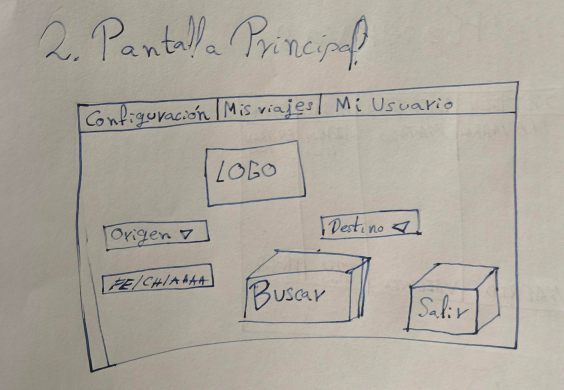 2. Pantalla Principal
Configuración | Mis viajes | Mi Usuario
LOGO
Origen ▽
Destino ◁
FE/CH/AAAA
Buscar
Salir